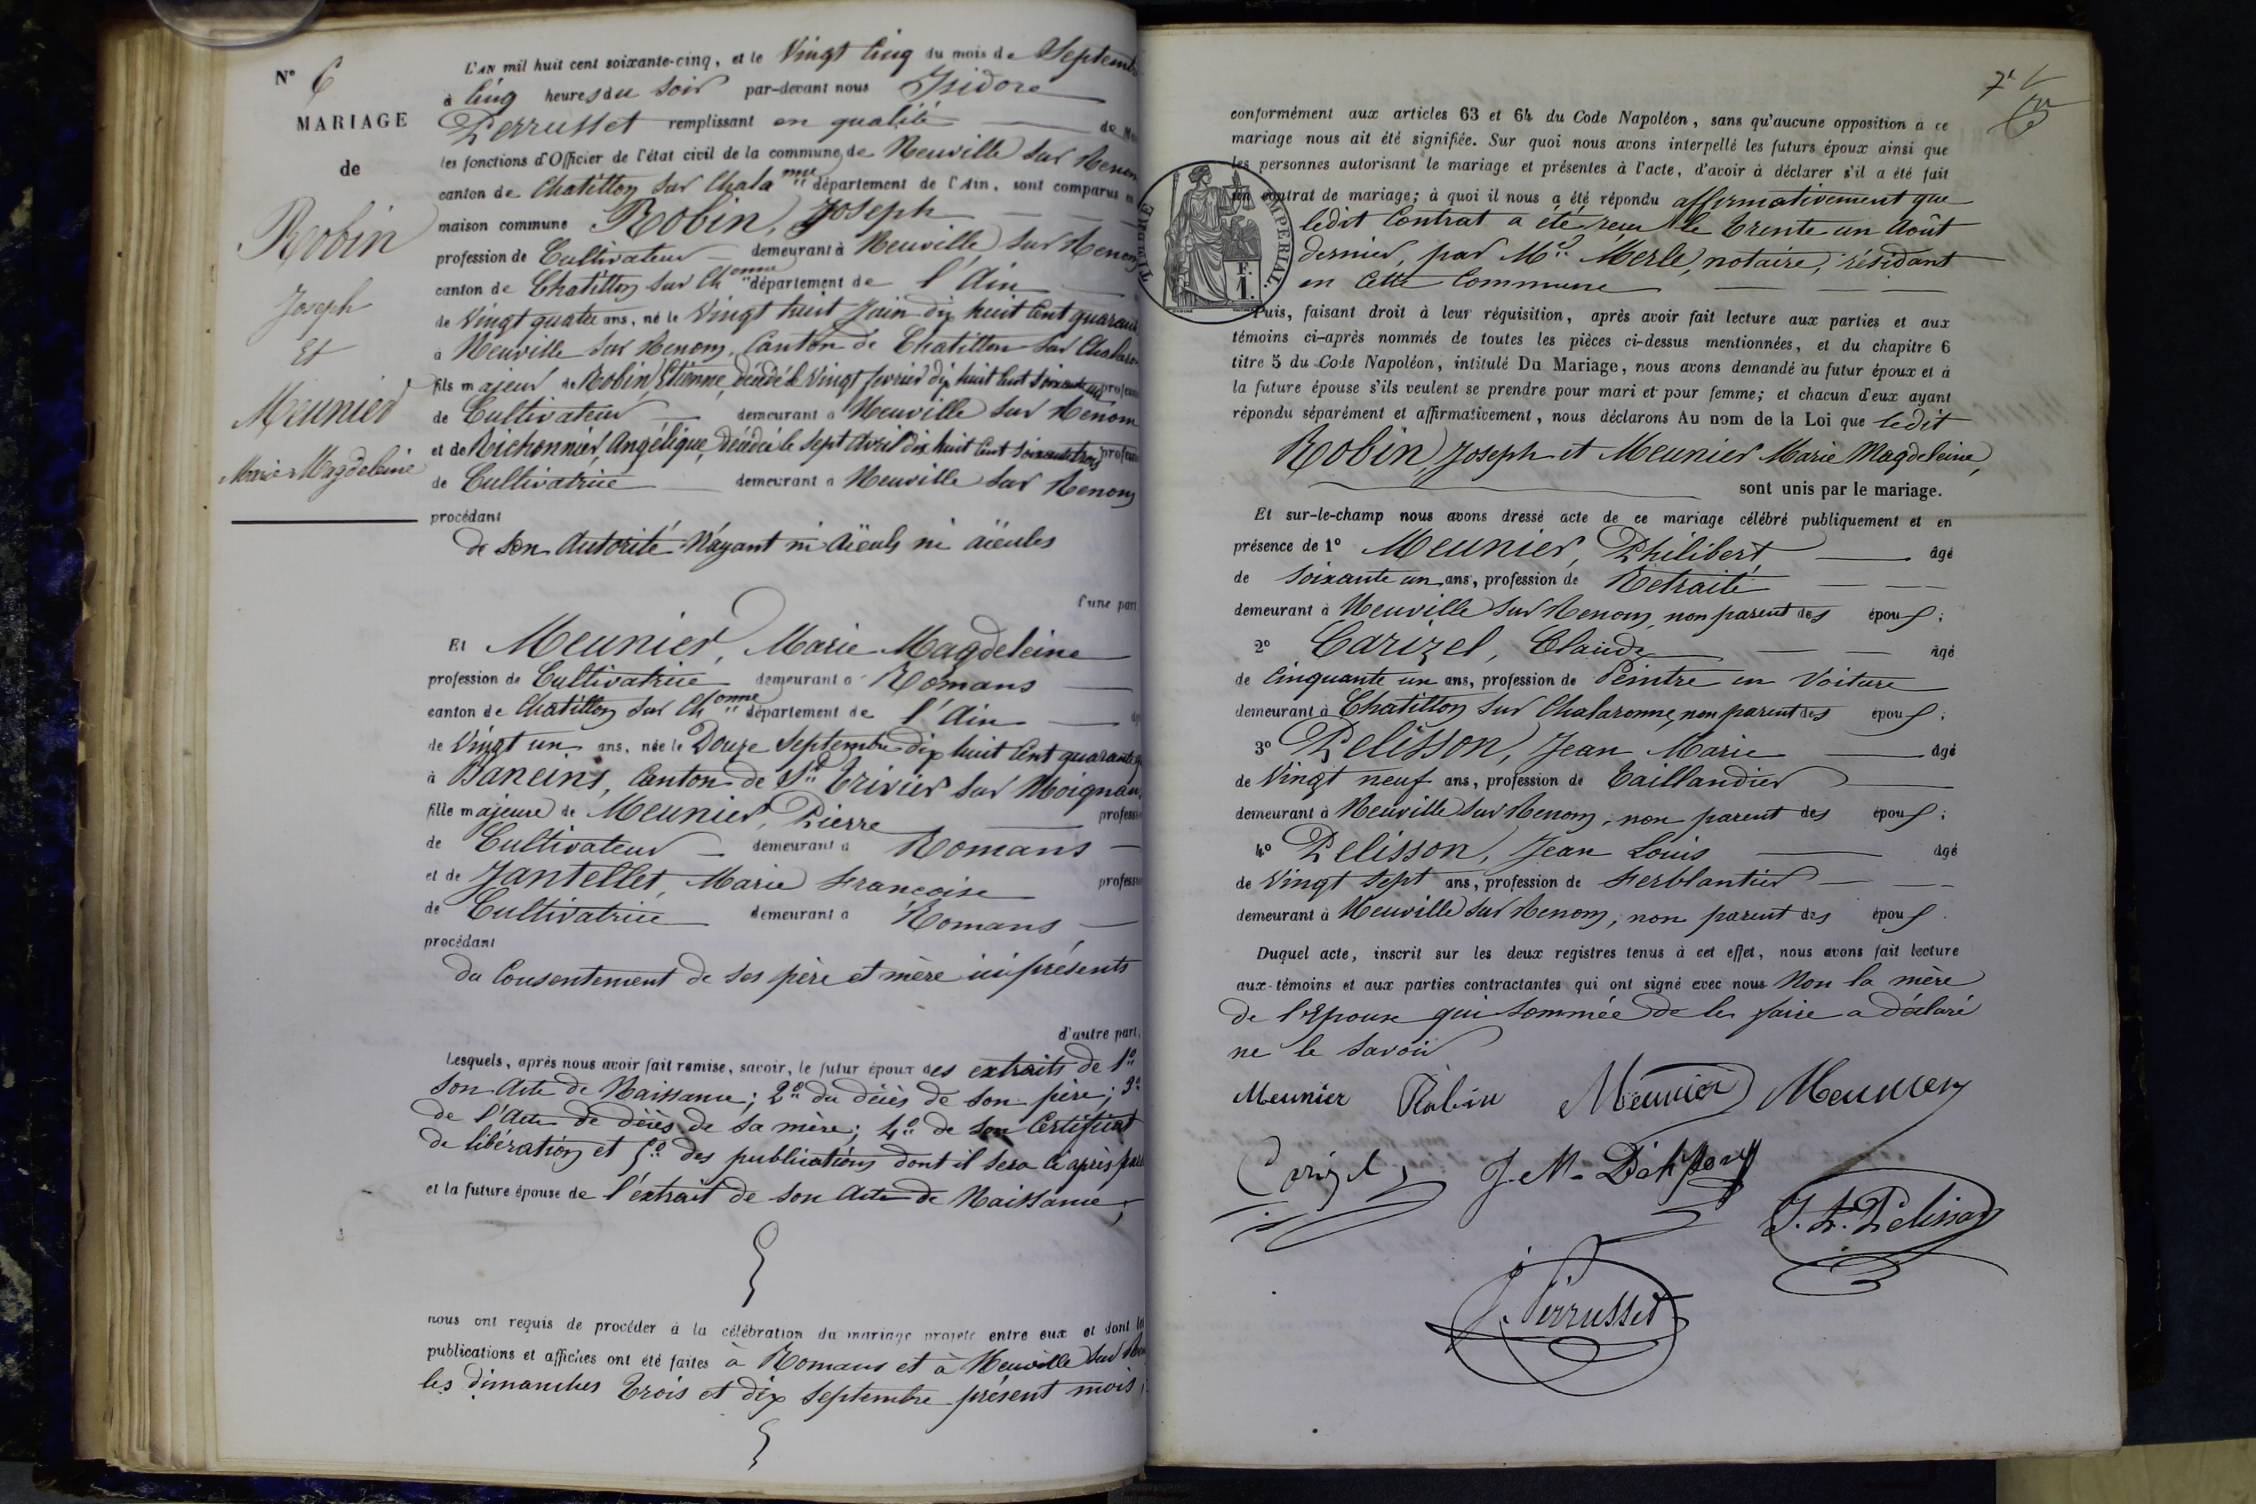 N° 6
MARIAGE
de
Robin
Joseph
Et
Meunier
Marie Magdeleine
L'AN mil huit cent soixante-cinq, et le Vingt Cinq du mois de Septemb
à Cinq heures du Soir par-devant nous Isidore
Perrusset remplissant en qualité de
les fonctions d'Officier de l'état civil de la commune de Neuville sur Renon
canton de Chatillon sur Chalaronne département de l'Ain, sont comparus en
maison commune Robin, Joseph
profession de Cultivateur demeurant à Neuville sur Renon
canton de Chatillon sur Chonne département de l'Ain
de Vingt quatre ans, né le Vingt huit Juin dix huit Cent quarant
à Neuville sur Renom, Canton de Chatillon sur Chalaron
fils majeur de Robin, Etienne, décédé le Vingt février dix huit Cent Soixante cinq profession
de Cultivateur demeurant à Neuville sur Renom
et de Reichonnier, Angélique, décédée le Sept Avril dix huit Cent Soixante trois profession
de Cultivatrice demeurant à Neuville sur Renom
procédant
de son Autorité N'ayant ni Aïeuls ni aïeules
d'une part
Et Meunier, Marie Magdeleine
profession de Cultivatrice demeurant à Romans
canton de Chatillon sur Chonne département de l'Ain
de Vingt un ans, née le Douze Septembre dix huit Cent quarante
à Baneins, Canton de St Trivier sur Moignans
fille majeure de Meunier, Pierre profession
de Cultivateur demeurant à Romans
et de Jantellet, Marie Francoise profession
de Cultivatrice demeurant à Romans
procédant
du Consentement de ses père et mère ici présents
d'autre part.
Lesquels, après nous avoir fait remise, savoir, le futur époux des extraits de 1°
son Acte de Naissance; 2° du décès de son père; 3°
de l'Acte de décès de sa mère; 4° de son Certificat
de libération et 5° des publications dont il sera ci après parl
et la future épouse de l'extrait de son Acte de Naissance;
nous ont requis de procéder à la célébration du mariage projeté entre eux et dont les
publications et affiches ont été faites à Romans et à Neuville sur Ren
les dimanches Trois et dix Septembre présent mois
7
conformément aux articles 63 et 64 du Code Napoléon, sans qu'aucune opposition à ce
mariage nous ait été signifiée. Sur quoi nous avons interpellé les futurs époux ainsi que
les personnes autorisant le mariage et présentes à l'acte, d'avoir à déclarer s'il a été fait
un contrat de mariage; à quoi il nous a été répondu affirmativement que
ledit Contrat a été reçu le Trente un Août
dernier, par Me Merle, notaire, résidant
en Cette Commune
TIMBRE IMPERIAL
F.
1.
Puis, faisant droit à leur réquisition, après avoir fait lecture aux parties et aux
témoins ci-après nommés de toutes les pièces ci-dessus mentionnées, et du chapitre 6
titre 5 du Code Napoléon, intitulé Du Mariage, nous avons demandé au futur époux et à
la future épouse s'ils veulent se prendre pour mari et pour femme; et chacun d'eux ayant
répondu séparément et affirmativement, nous déclarons Au nom de la Loi que ledit
Robin, Joseph et Meunier Marie Magdeleine,
sont unis par le mariage.
Et sur-le-champ nous avons dressé acte de ce mariage célébré publiquement et en
présence de 1° Meunier, Philibert, âgé
de Soixante un ans, profession de Retraité
demeurant à Neuville sur Renom, non parent des époux;
2° Carizel, Claude âgé
de Cinquante un ans, profession de Peintre en Voiture
demeurant à Chatillon sur Chalaronne, non parent des époux;
3° Pelisson, Jean Marie âgé
de Vingt neuf ans, profession de Taillandier
demeurant à Neuville sur Renom, non parent des époux;
4° Pelisson, Jean Louis âgé
de Vingt Sept ans, profession de Ferblantier
demeurant à Neuville sur Renom, non parent des époux.
Duquel acte, inscrit sur les deux registres tenus à cet effet, nous avons fait lecture
aux témoins et aux parties contractantes qui ont signé avec nous Non la mère
de l'Epouse qui Sommée de le faire a déclaré
ne le savoir
Meunier Robin Meunier Meunier
Carizel J. M. Pelisson
J. L. Pelisson
J. Perrusset